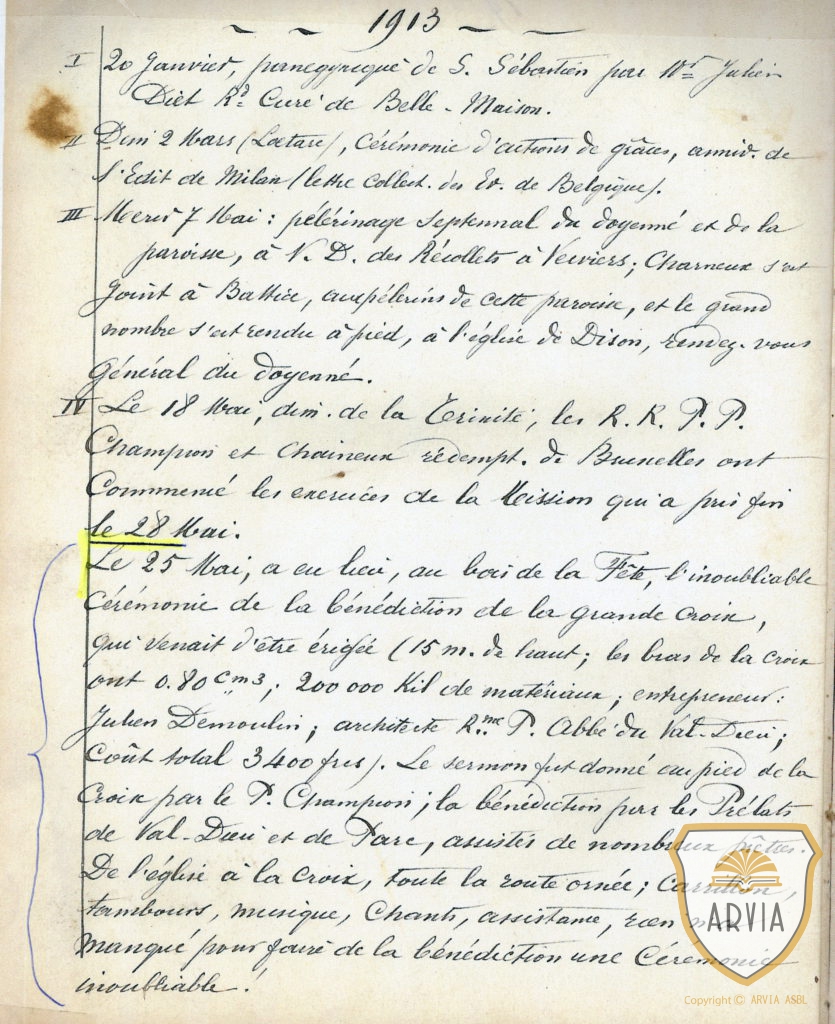 1913
I 20 Janvier, panegyrique de S. Sébastien par Mr Julien
Diet Rd Curé de Belle-Maison.
II Dim 2 Mars (Laetare), cérémonie d'actions de grâces, anniv. de
l'Edit de Milan (lettre collect. des Ev. de Belgique).
III Mercr 7 Mai : pélérinage septennal du doyenné et de la
paroisse, à N. D. des Récollets à Verviers; Charneux s'est
joint à Battice, aux pélerins de cette paroisse, et le grand
nombre s'est rendu à pied, à l'église de Dison, rendez-vous
Général du doyenné.
IV Le 18 Mai, dim. de la Trinité, les R. R. P. P.
Champion et Chaineux rédempt. de Bruxelles ont
Commencé les exercices de la Mission qui a pris fin
le 28 Mai.
Le 25 Mai, a eu lieu, au bois de la Fête, l'inoubliable
Cérémonie de la bénédiction de la grande Croix,
qui venait d'être érigée (15 m. de haut; les bras de la croix
ont 0.80 cm3; 200 000 Kil de matériaux; entrepreneur:
Julien Demoulin; architecte Rme P. Abbé du Val-Dieu;
Coût total 3400 frcs). Le sermon fut donné au pied de la
Croix par le P. Champion; la bénédiction par les Prélats
de Val-Dieu et de Parc, assistés de nombreux prêtres.
De l'église à la Croix, toute la route ornée; Carrillon,
tambours, musique, Chants, assistance, rien n'a
manqué pour faire de la bénédiction une Cérémonie
inoubliable!
ARVIA
Copyright © ARVIA ASBL